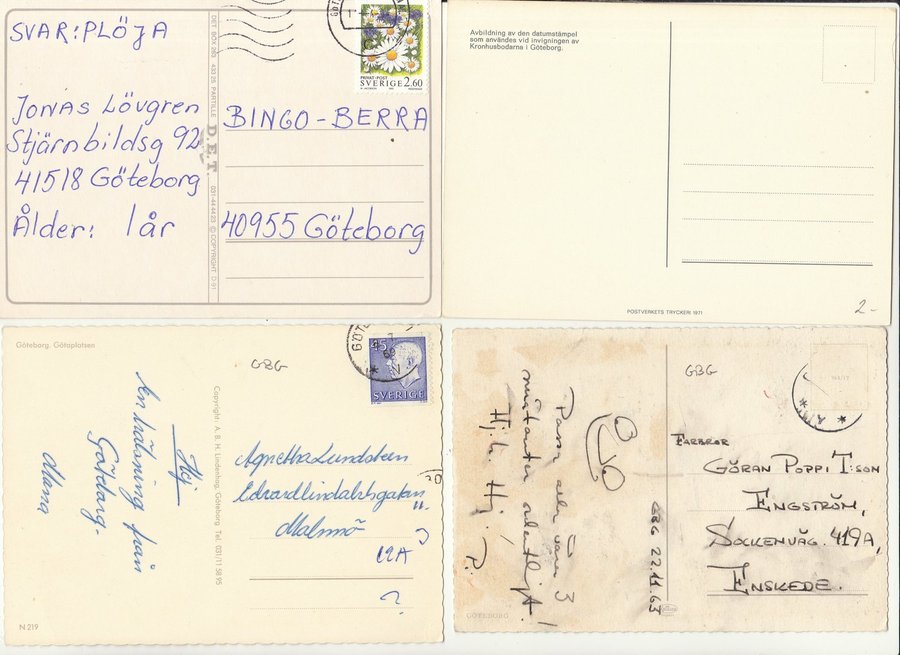 SVAR: PLÖJA
JONAS LÖVGREN
Stjärnbildsg 92
41518 Göteborg
Ålder: 1 år
DET BOX 263 433 25 PARTILLE D.E.T. 031-444423 © COPYRIGHT D-91
PRIVAT-POST
SVERIGE 2.60
BINGO-BERRA
40955 Göteborg
Avbildning av den datumstämpel
som användes vid invigningen av
Kronhusbodarna i Göteborg.
POSTVERKETS TRYCKERI 1971
2-
Göteborg. Götaplatsen
Hej
En hälsning från
Göteborg.
Mama
N 219
Copyright: A. B. H. Lindenhag, Göteborg Tel. (031) 11 58 95
GBG
45
SVERIGE
Agnetha Lundsteen
Malmö
12A
?
GBG
Passa alla våra 3
ordentligt!
Hj. Hj.
P.
GBG 22.11.63
GÖTEBORG
FARBROR
GÖRAN POPPI T:SON
ENGSTRÖM,
SOCKENVÄG. 419A,
ENSKEDE.